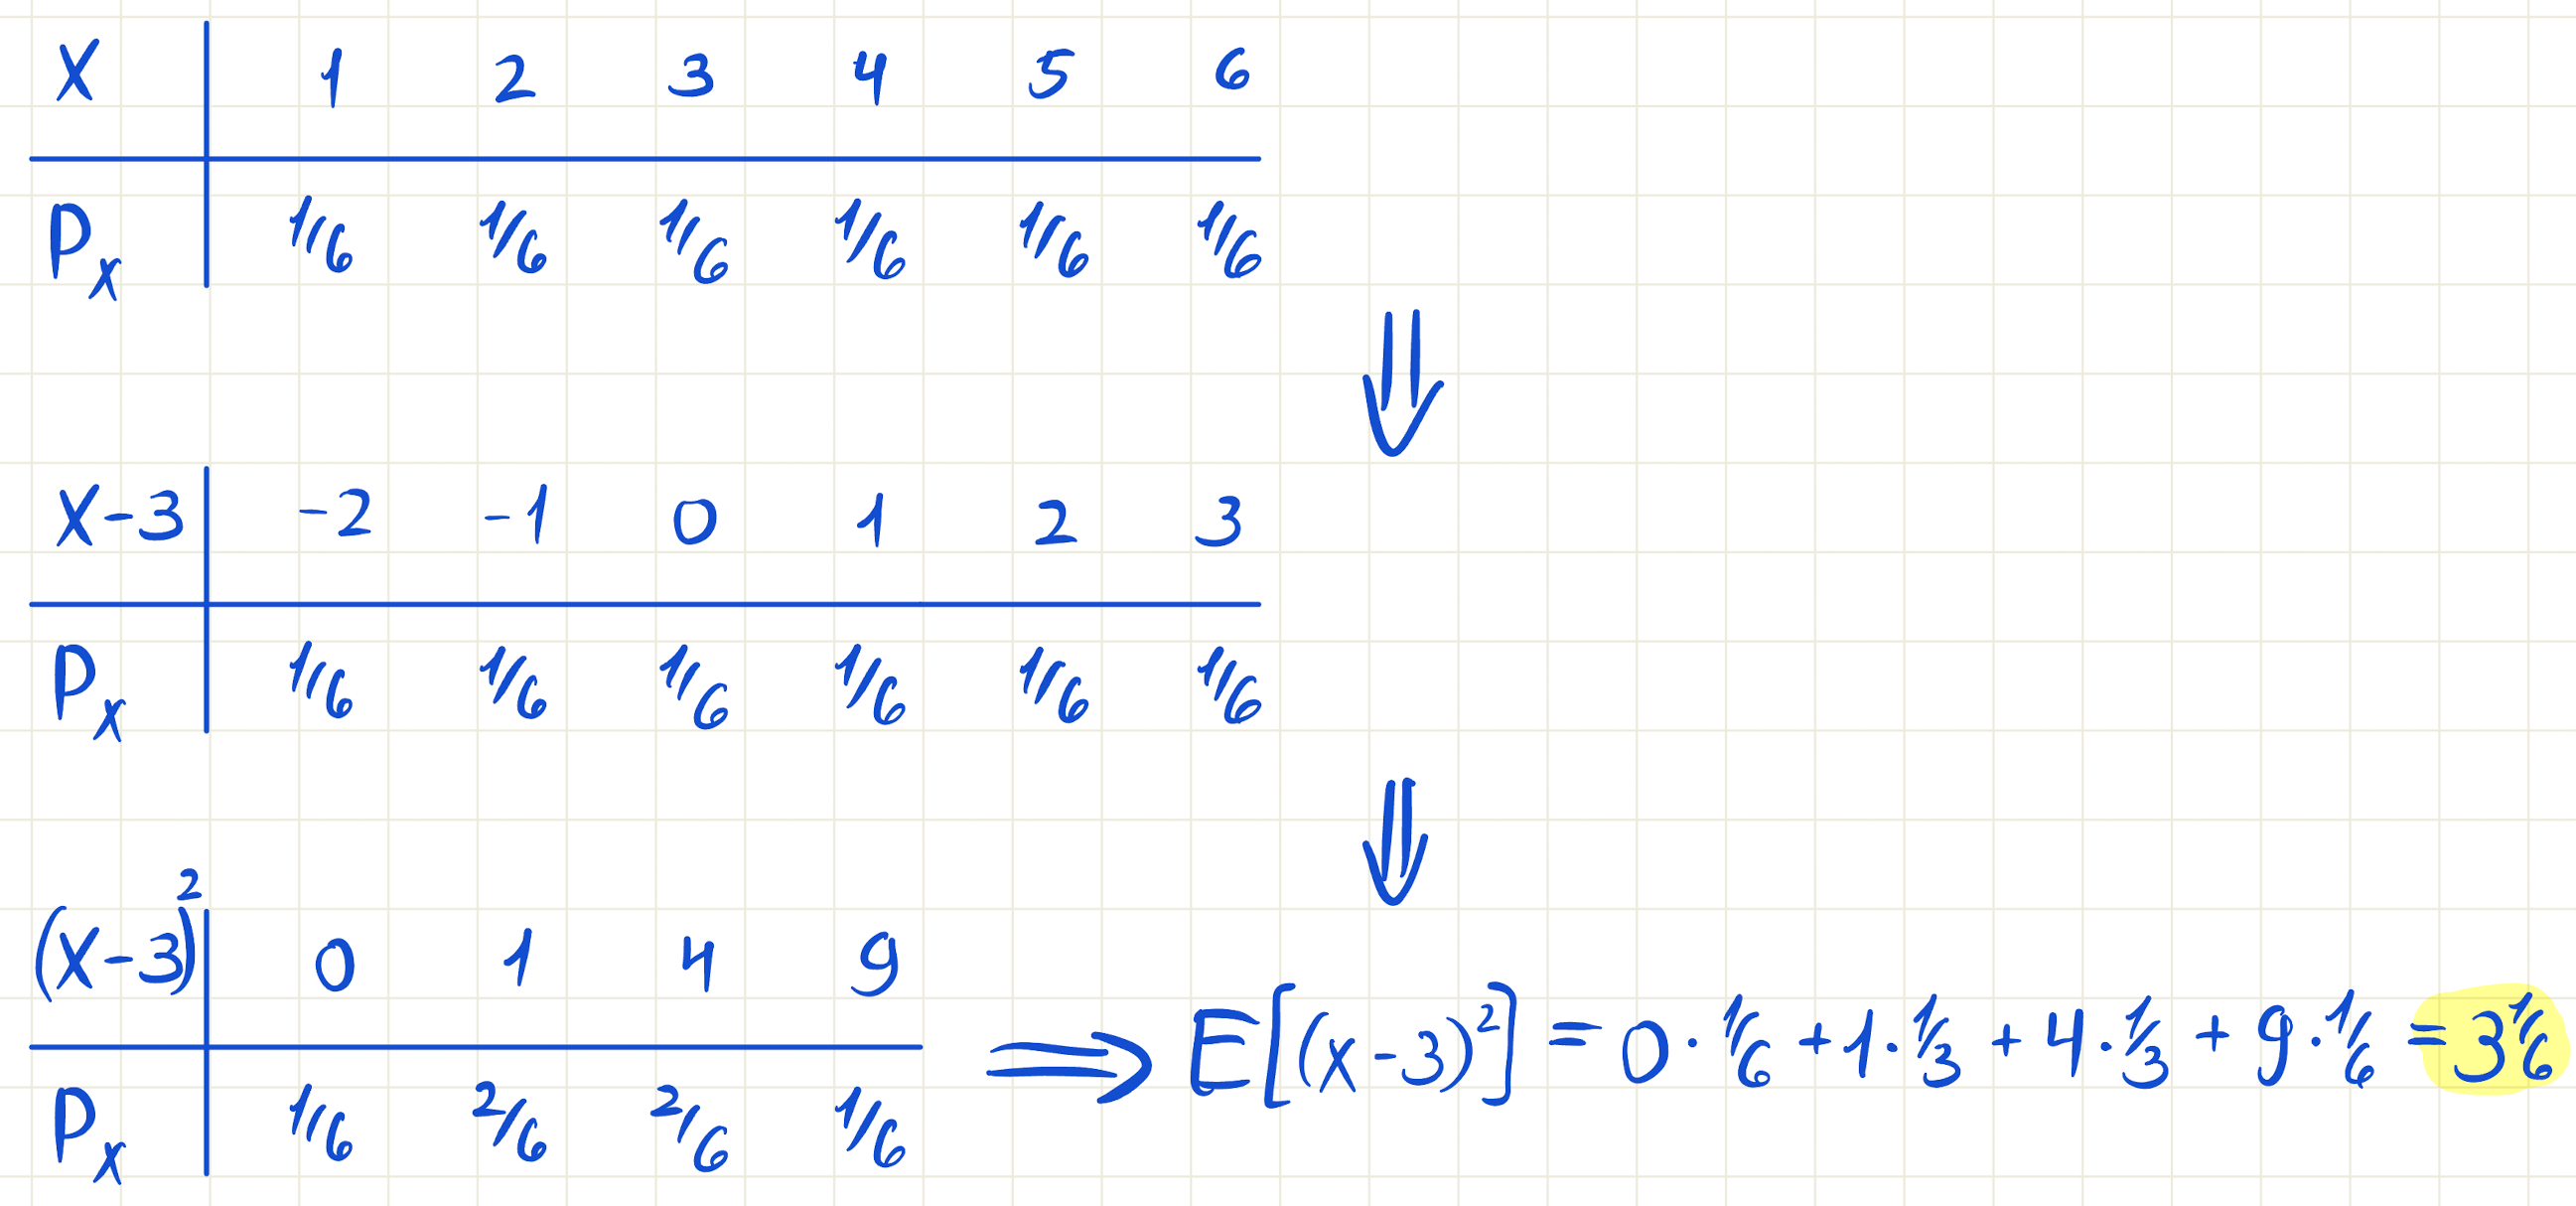 X 1 2 3 4 5 6
Pₓ 1/6 1/6 1/6 1/6 1/6 1/6
⇓
X-3 -2 -1 0 1 2 3
Pₓ 1/6 1/6 1/6 1/6 1/6 1/6
⇓
(X-3)² 0 1 4 9
Pₓ 1/6 2/6 2/6 1/6
⟹ E[(x-3)²] = 0·1/6 + 1·1/3 + 4·1/3 + 9·1/6 = 3 1/6